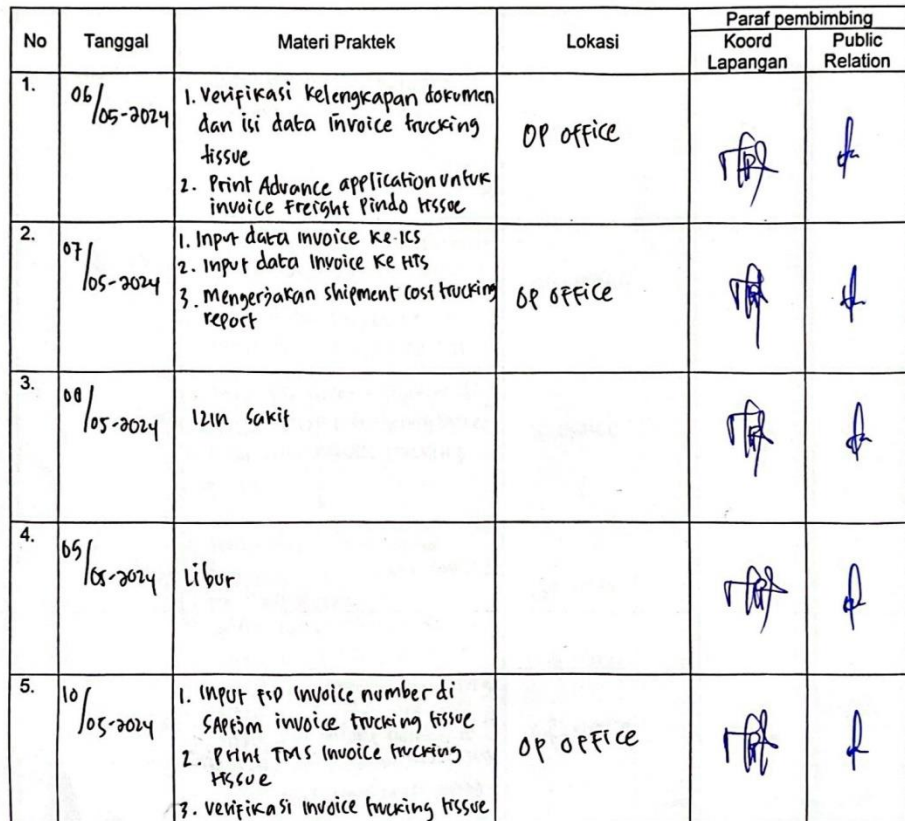 No Tanggal Materi Praktek Lokasi Paraf pembimbing
Koord Lapangan Public Relation
1.
06/05-2024
1. Verifikasi kelengkapan dokumen
dan isi data invoice trucking
tissue
2. Print Advance application untuk
invoice Freight Pindo tissue
OP office
2.
07/05-2024
1. Input data invoice ke ICS
2. Input data Invoice ke HTS
3. Mengerjakan shipment cost trucking
report
OP OFFice
3.
08/05-2024
Izin sakit
4.
09/05-2024
Libur
5.
10/05-2024
1. Input FSP Invoice number di
invoice trucking tissue
2. Print TMS Invoice trucking
tissue
3. Verifikasi invoice trucking tissue
OP OFFice